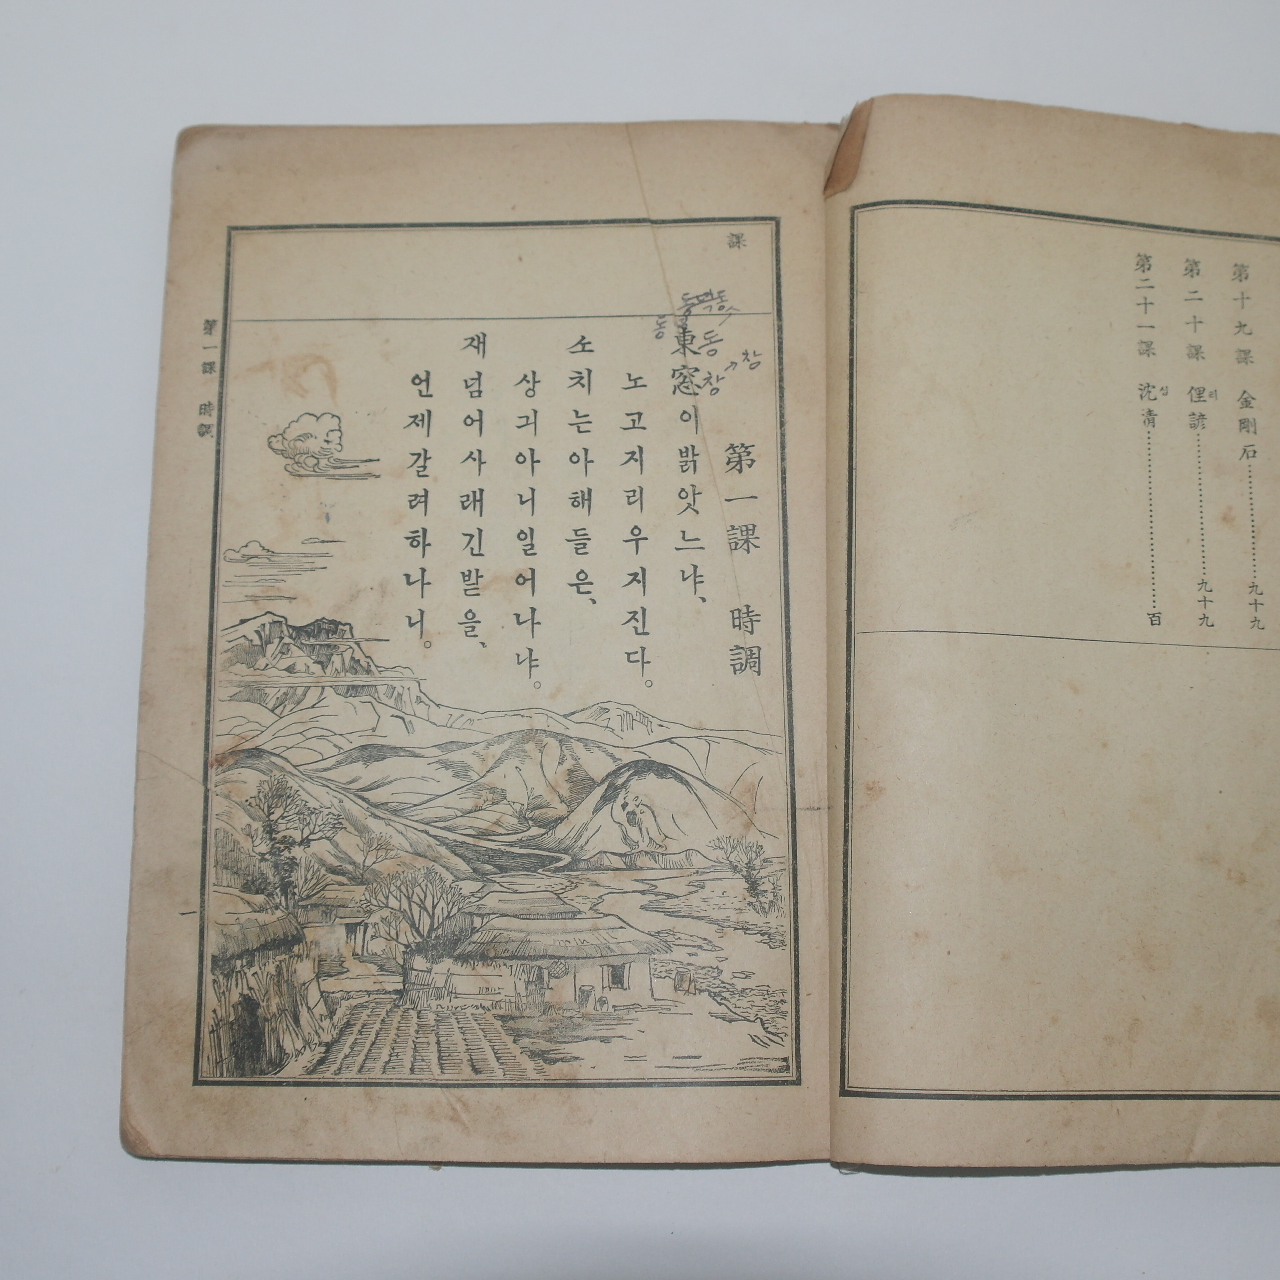 第十九課 金剛石……九十九
第二十課 俚리諺……九十九
第二十一課 沈심淸……百
課
第一課 時調
東窓이밝앗느냐、
노고지리우지진다。
소치는아해들은、
상긔아니일어나냐。
재넘어사래긴밭을、
언제갈려하나니。
동
동
창
창
第一課 時調
一